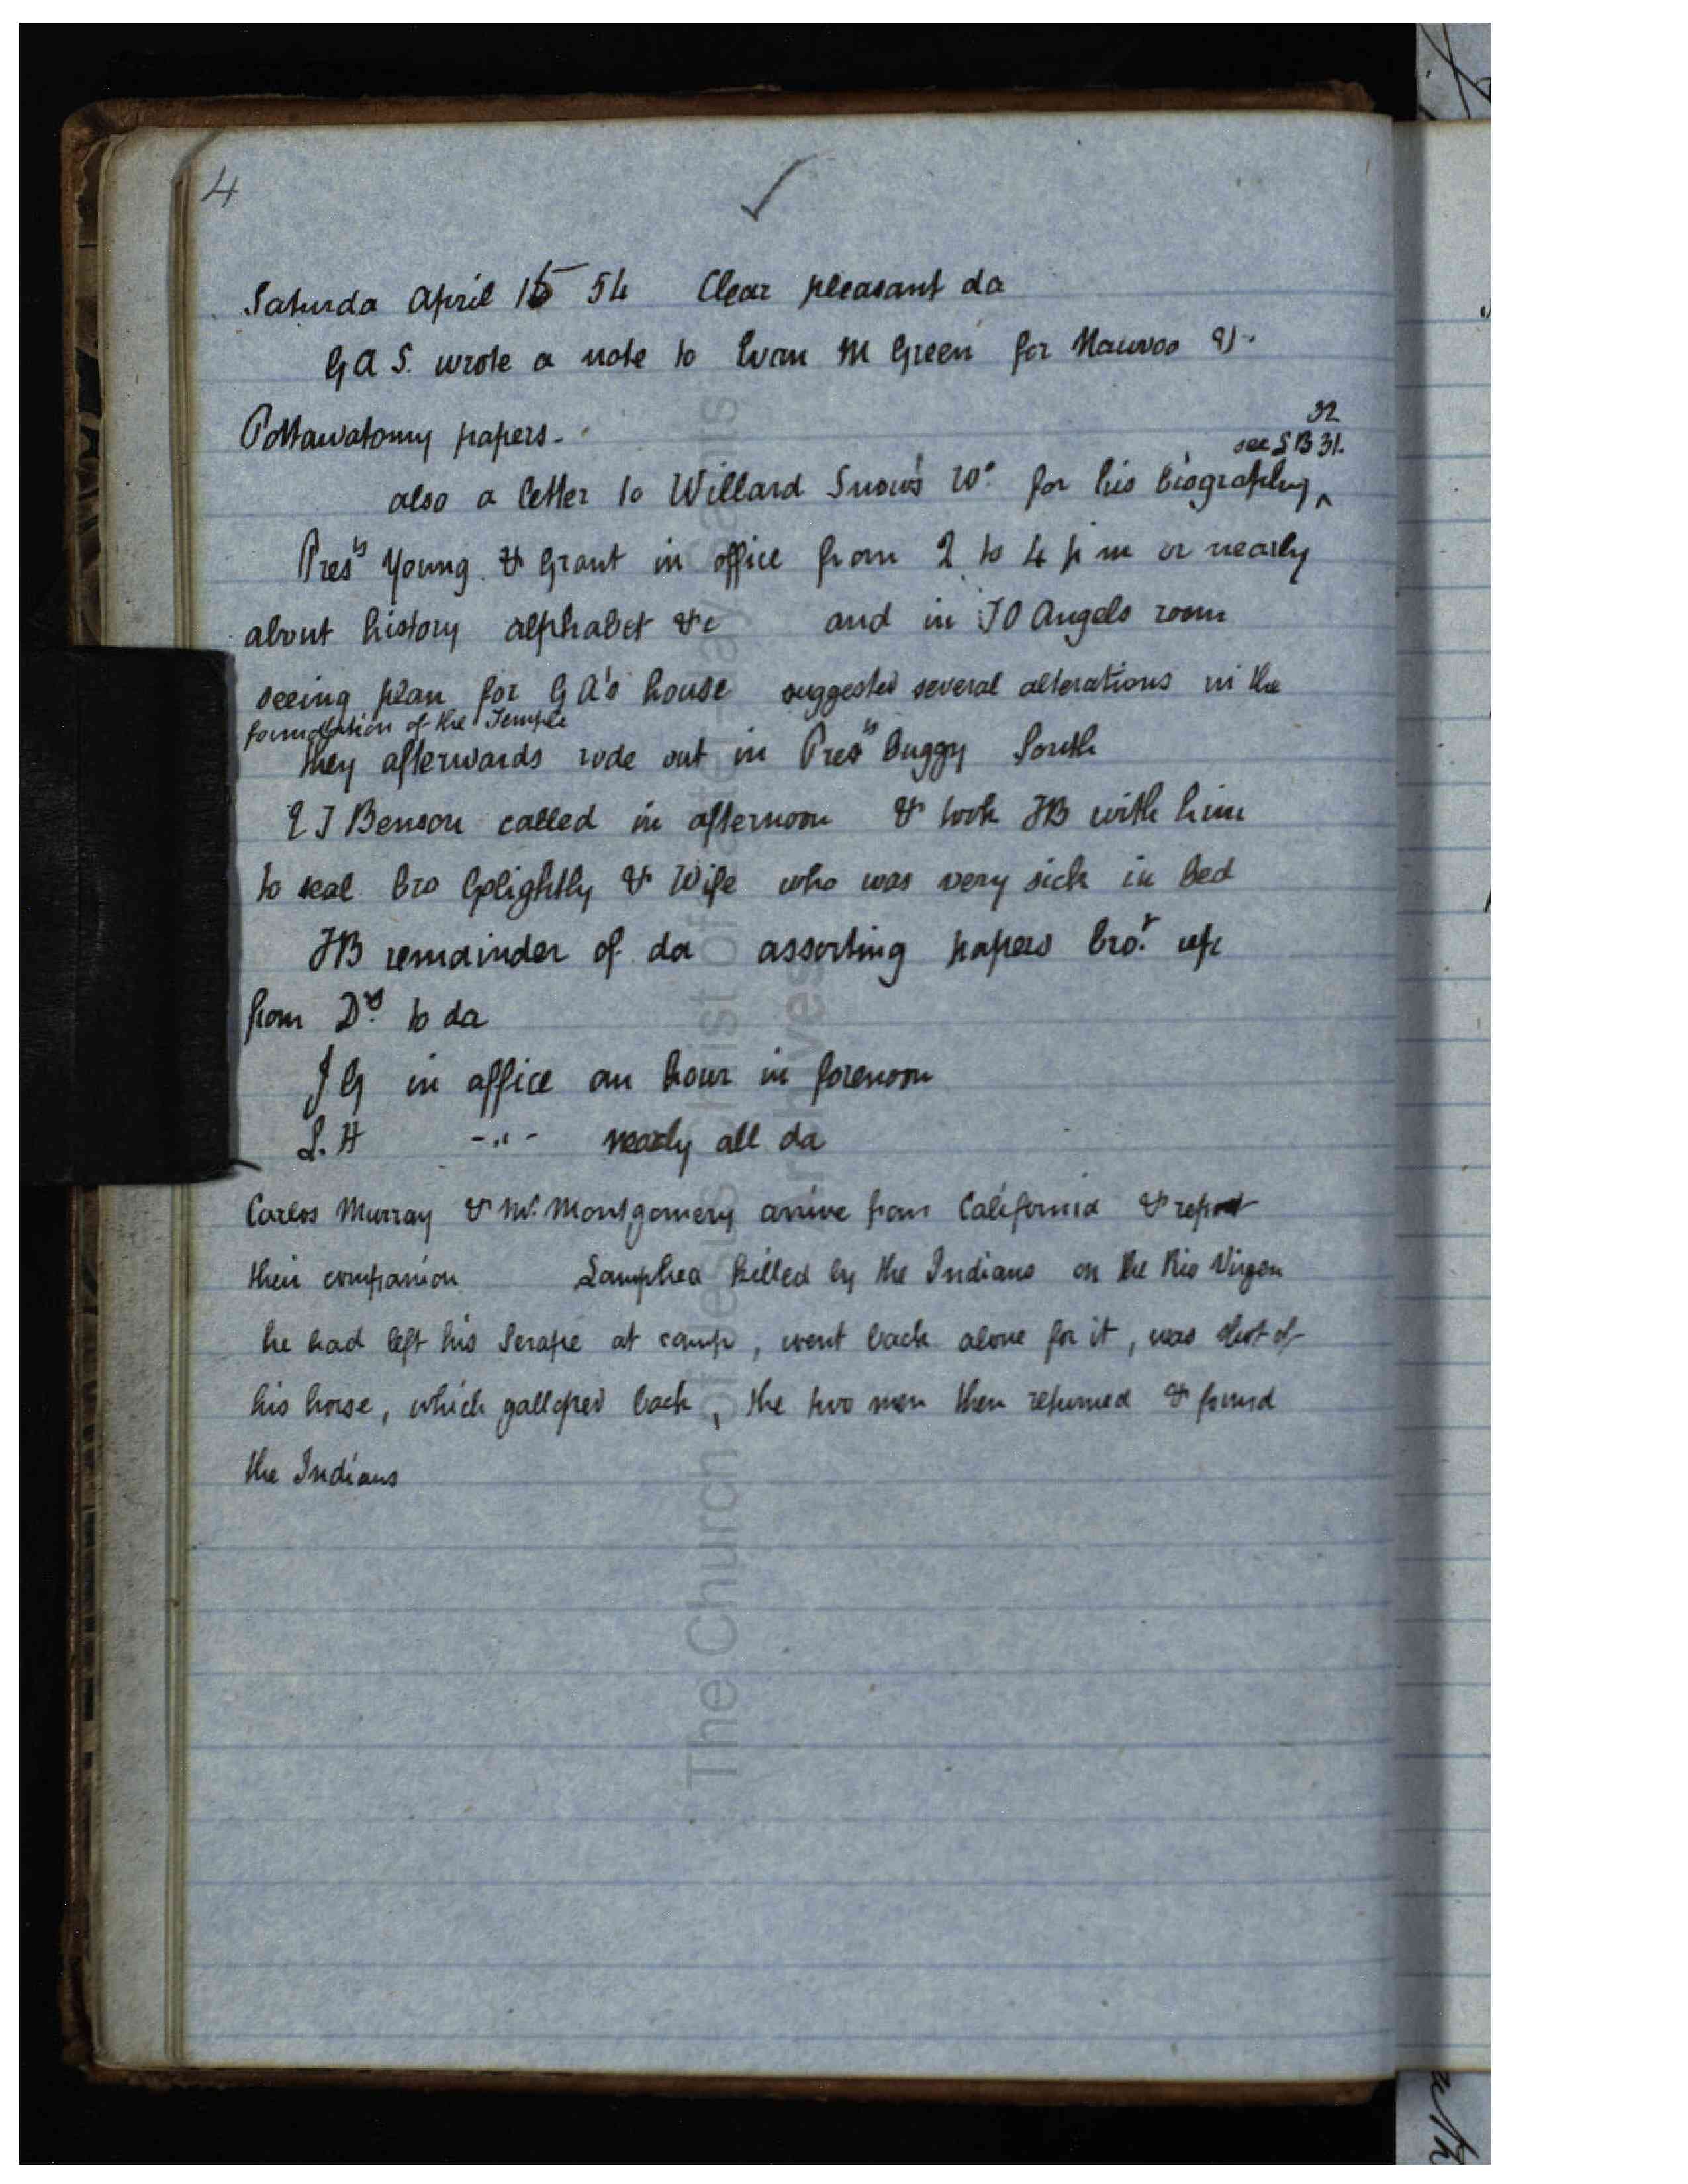 4
Saturda April 15 54 Clear pleasant da
G A S. wrote a note to Evan M Green for Nauvoo &
Pottawatomy papers.
32
see LB 31.
also a letter to Willard Snow's wo. for his biography ^
Pres.ts Young & Grant in office from 2 to 4 p m or nearly
about history alphabet &c and in T O Angels room
seeing plan for G A's house suggested several alterations in the
foundation of the Temple
they afterwards rode out in Pres.ts buggy South
E T Benson called in afternoon & took JB with him
to seal bro Golightly & Wife who was very sick in bed
JB remainder of da assorting papers bro.t up
from D.rs to da
J G in office an hour in forenoon
L. H -"- nearly all da
Carlos Murray & W. Montgomery arrive from California & report
their companion Lamphea killed by the Indians on the Rio Virgen
he had left his Serape at camp, went back alone for it, was shot of
his horse, which galloped back, the two men then returned & found
the Indians
The Church of Jesus Christ of Latter-day Saints
Archives